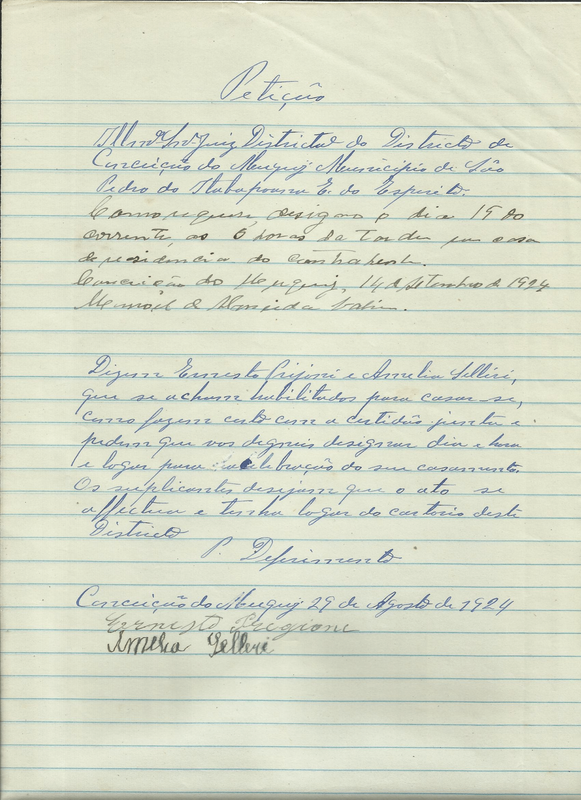 Petição
Illmo Snr. Juiz Districtal do Districto de
Conceição do Muquy Municipio de São
Pedro do Itabapoana E. do Espirito.
Como requer, designo o dia 15 do
corrente, as 6 horas da tarde em casa
de residencia do contrahente.
Conceição do Muquy, 14 de Setembro de 1924
Manoel de Almeida
Dizem Ernesto Frijoni e Amelia Selléri,
que se acham habilitados para casar-se,
como fazem certo com a certidão junta e
pedem que vos digneis designar dia e hora
e logar para celebração do seu casamento.
Os suplicantes desejam que o ato se
affectue e tenha logar do cartorio deste
Districto
P. Deferimento
Conceição do Muquy 29 de Agosto de 1924
Ernesto Fregione
Amelia Selleri